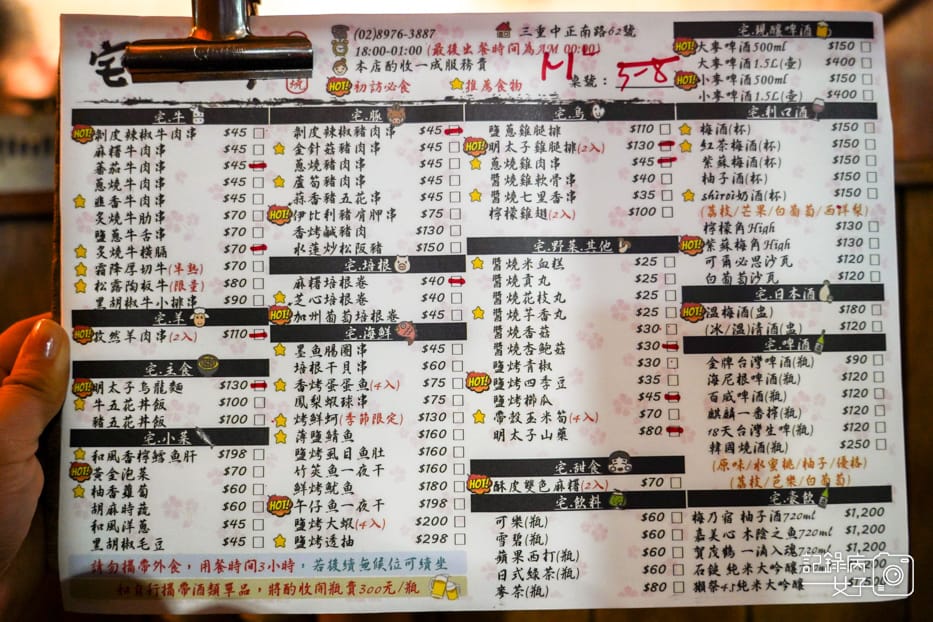 宅
燒
(02)8976-3887
三重中正南路62號
18:00-01:00 (最後出餐時間為AM 00:00)
本店酌收一成服務費
HOT! 初訪必食
推薦食物
桌號：
M
5-8
宅.牛
HOT! 剝皮辣椒牛肉串 $45
麻糬牛肉串 $45
蕃茄牛肉串 $45
蔥燒牛肉串 $45
韭香牛肉串 $45
炙燒牛肋串 $70
鹽蔥牛舌串 $70
炙燒牛橫膈 $70
霜降厚切牛(半熟) $70
松露陶板牛(限量) $80
黑胡椒牛小排串 $90
宅.羊
HOT! 孜然羊肉串(2入) $110
宅.主食
HOT! 明太子烏龍麵 $130
牛五花丼飯 $100
豬五花丼飯 $100
宅.小菜
和風香檸鱈魚肝 $198
HOT! 黃金泡菜 $70
柚香蘿蔔 $60
胡麻時蔬 $60
和風洋蔥 $45
黑胡椒毛豆 $45
宅.豚
剝皮辣椒豬肉串 $45
金針菇豬肉串 $45
蔥燒豬肉串 $45
蘆筍豬肉串 $45
蒜香豬五花串 $45
HOT! 伊比利豬肩胛串 $75
香烤鹹豬肉 $130
水蓮炒松阪豬 $150
宅.培根
麻糬培根卷 $40
芝心培根卷 $40
HOT! 加州葡萄培根卷 $45
宅.海鮮
墨魚腸圈串 $45
培根干貝串 $60
香烤蛋蛋魚(4入) $75
鳳梨蝦球串 $75
炙烤鮮蚵(季節限定) $130
薄鹽鯖魚 $160
鹽烤虱目魚肚 $160
竹筴魚一夜干 $160
鮮烤魷魚 $180
HOT! 午仔魚一夜干 $198
鹽烤大蝦(4入) $200
鹽烤透抽 $298
宅.鳥
鹽蔥雞腿排 $110
HOT! 明太子雞腿排(2入) $130
蔥燒雞肉串 $45
醬燒雞軟骨串 $40
醬燒七里香串 $35
檸檬雞翅(2入) $100
宅.野菜.其他
醬燒米血糕 $25
醬燒貢丸 $25
醬燒花枝丸 $25
醬燒芋香丸 $25
醬燒香菇 $30
醬燒杏鮑菇 $30
鹽烤青椒 $30
HOT! 鹽烤四季豆 $35
鹽烤櫛瓜 $45
帶殼玉米筍(4入) $70
明太子山藥 $80
宅.甜食
HOT! 酥皮雙色麻糬(2入) $70
宅.飲料
可樂(瓶) $60
雪碧(瓶) $60
蘋果西打(瓶) $60
日式綠茶(瓶) $60
麥茶(瓶) $80
宅.現釀啤酒
HOT! 大麥啤酒500ml $150
大麥啤酒1.5L(壺) $400
HOT! 小麥啤酒500ml $150
小麥啤酒1.5L(壺) $400
宅.利口酒
梅酒(杯) $150
紅茶梅酒(杯) $150
紫蘇梅酒(杯) $150
柚子酒(杯) $150
shiroi奶酒(杯) $150
(荔枝/芒果/白葡萄/西洋梨)
檸檬角High $130
HOT! 紫蘇梅角High $130
可爾必思沙瓦 $120
白葡萄沙瓦 $120
宅.日本酒
HOT! 溫梅酒(盅) $180
(冰/溫)清酒(盅) $120
宅.啤酒
金牌台灣啤酒(瓶) $90
海尼根啤酒(瓶) $120
百威啤酒(瓶) $120
麒麟一番榨(瓶) $120
18天台灣生啤(瓶) $120
韓國燒酒(瓶) $250
(原味/水蜜桃/柚子/優格)
(荔枝/芭樂/白葡萄)
宅.豪飲
梅乃宿 柚子酒720ml $1,200
嘉美心 木陰之魚720ml $1,200
賀茂鶴 一滴入魂720ml $1,200
石鎚 純米大吟釀
獺祭45純米大吟釀
請勿攜帶外食，用餐時間3小時，若後續無候位可續坐
如自行攜帶酒類單品，將酌收開瓶費300元/瓶
記錄病女子